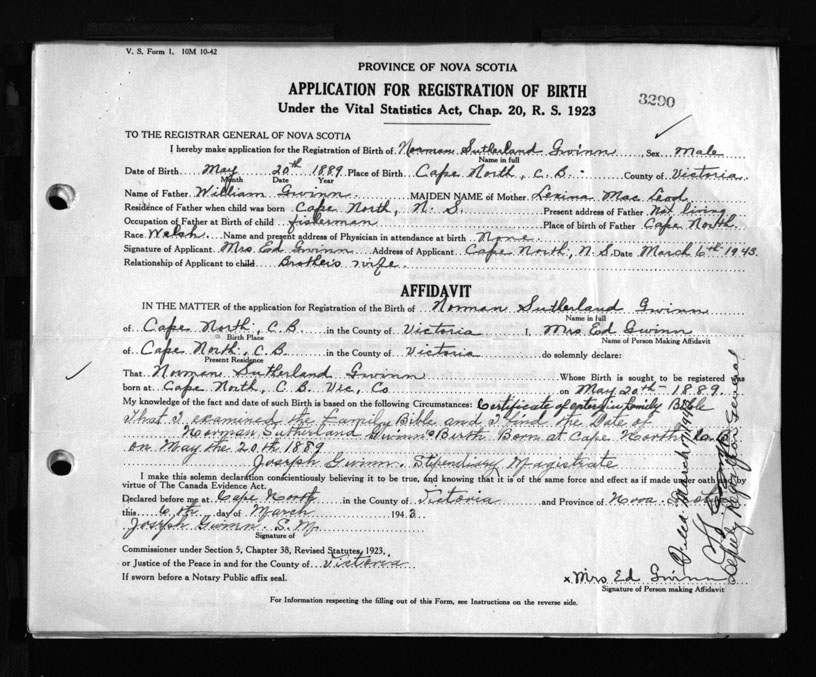 V. S. Form 1. 10M 10-42
PROVINCE OF NOVA SCOTIA
APPLICATION FOR REGISTRATION OF BIRTH
3290
Under the Vital Statistics Act, Chap. 20, R. S. 1923
TO THE REGISTRAR GENERAL OF NOVA SCOTIA
I hereby make application for the Registration of Birth of Norman Sutherland Gwinn, Sex Male
Name in full
Date of Birth May 20th 1889 Place of Birth Cape North, C.B. County of Victoria
Month Date Year
Name of Father William Gwinn MAIDEN NAME of Mother Lexina Mac Leod
Residence of Father when child was born Cape North, N.S. Present address of Father Not living
Occupation of Father at Birth of child fisherman Place of birth of Father Cape North.
Race Welsh. Name and present address of Physician in attendance at birth None.
Signature of Applicant Mrs Ed Gwinn Address of Applicant Cape North, N.S. Date March 6th 1943.
Relationship of Applicant to child Brother's wife.
AFFIDAVIT
IN THE MATTER of the application for Registration of the Birth of Norman Sutherland Gwinn
Name in full
of Cape North, C.B. in the County of Victoria I, Mrs Ed Gwinn
Birth Place Name of Person Making Affidavit
of Cape North, C.B. in the County of Victoria do solemnly declare:
Present Residence
That Norman Sutherland Gwinn Whose Birth is sought to be registered was
born at Cape North, C.B. Vic. Co on May 20th 1889.
My knowledge of the fact and date of such Birth is based on the following Circumstances: Certificate of entry in family Bible
That I examined the Family Bible and I find the Date of
Norman Sutherland Gwinn's Birth Born at Cape North
on May the 20th 1889
Joseph Gwinn. Stipendiary Magistrate
I make this solemn declaration conscientiously believing it to be true, and knowing that it is of the same force and effect as if made under oath by
virtue of The Canada Evidence Act.
Declared before me at Cape North in the County of Victoria and Province of Nova Scotia
this 6th day of March 1943
Joseph Gwinn. S.M.
Signature of
Commissioner under Section 5, Chapter 38, Revised Statutes, 1923,
or Justice of the Peace in and for the County of Victoria
If sworn before a Notary Public affix seal.
x Mrs Ed Gwinn
Signature of Person making Affidavit
For Information respecting the filling out of this Form, see Instructions on the reverse side.
Filed March
Deputy Registrar General